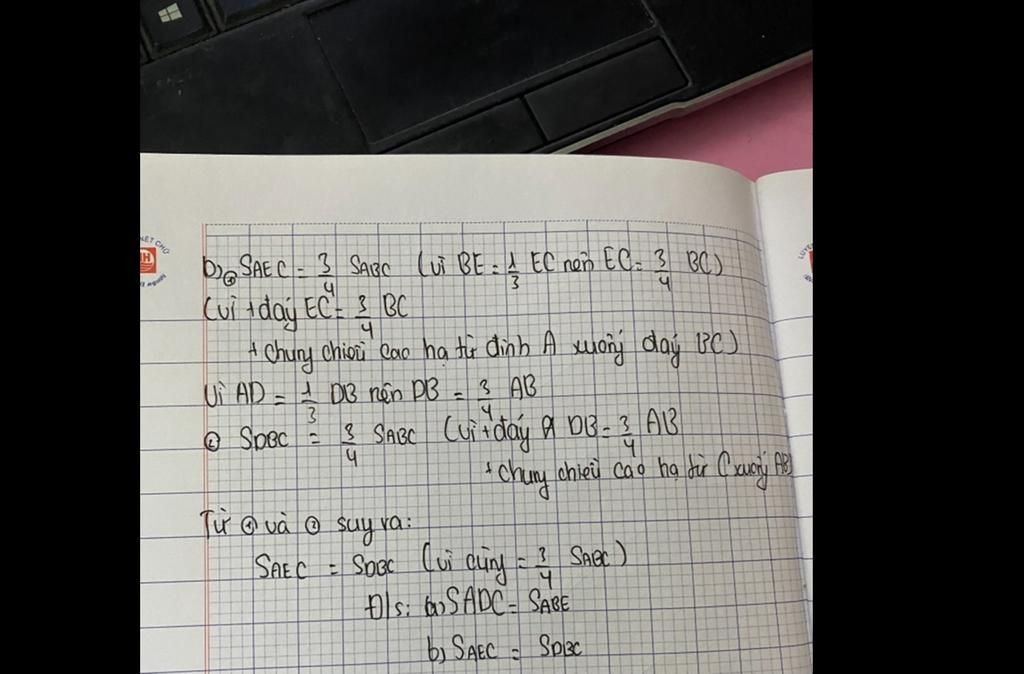 b) ① SAEC = 3/4 SABC (vì BE = 1/3 EC nên EC = 3/4 BC)
(vì + đáy EC = 3/4 BC
+ chung chiều cao hạ từ đỉnh A xuống đáy BC)
Vì AD = 1/3 DB nên DB = 3/4 AB
② SDBC = 3/4 SABC (vì + đáy DB = 3/4 AB
+ chung chiều cao hạ từ C xuống AB
Từ ① và ② suy ra:
SAEC = SDBC (vì cùng = 3/4 SABC)
Đ/s: a) SADC = SABE
b) SAEC = SDBC